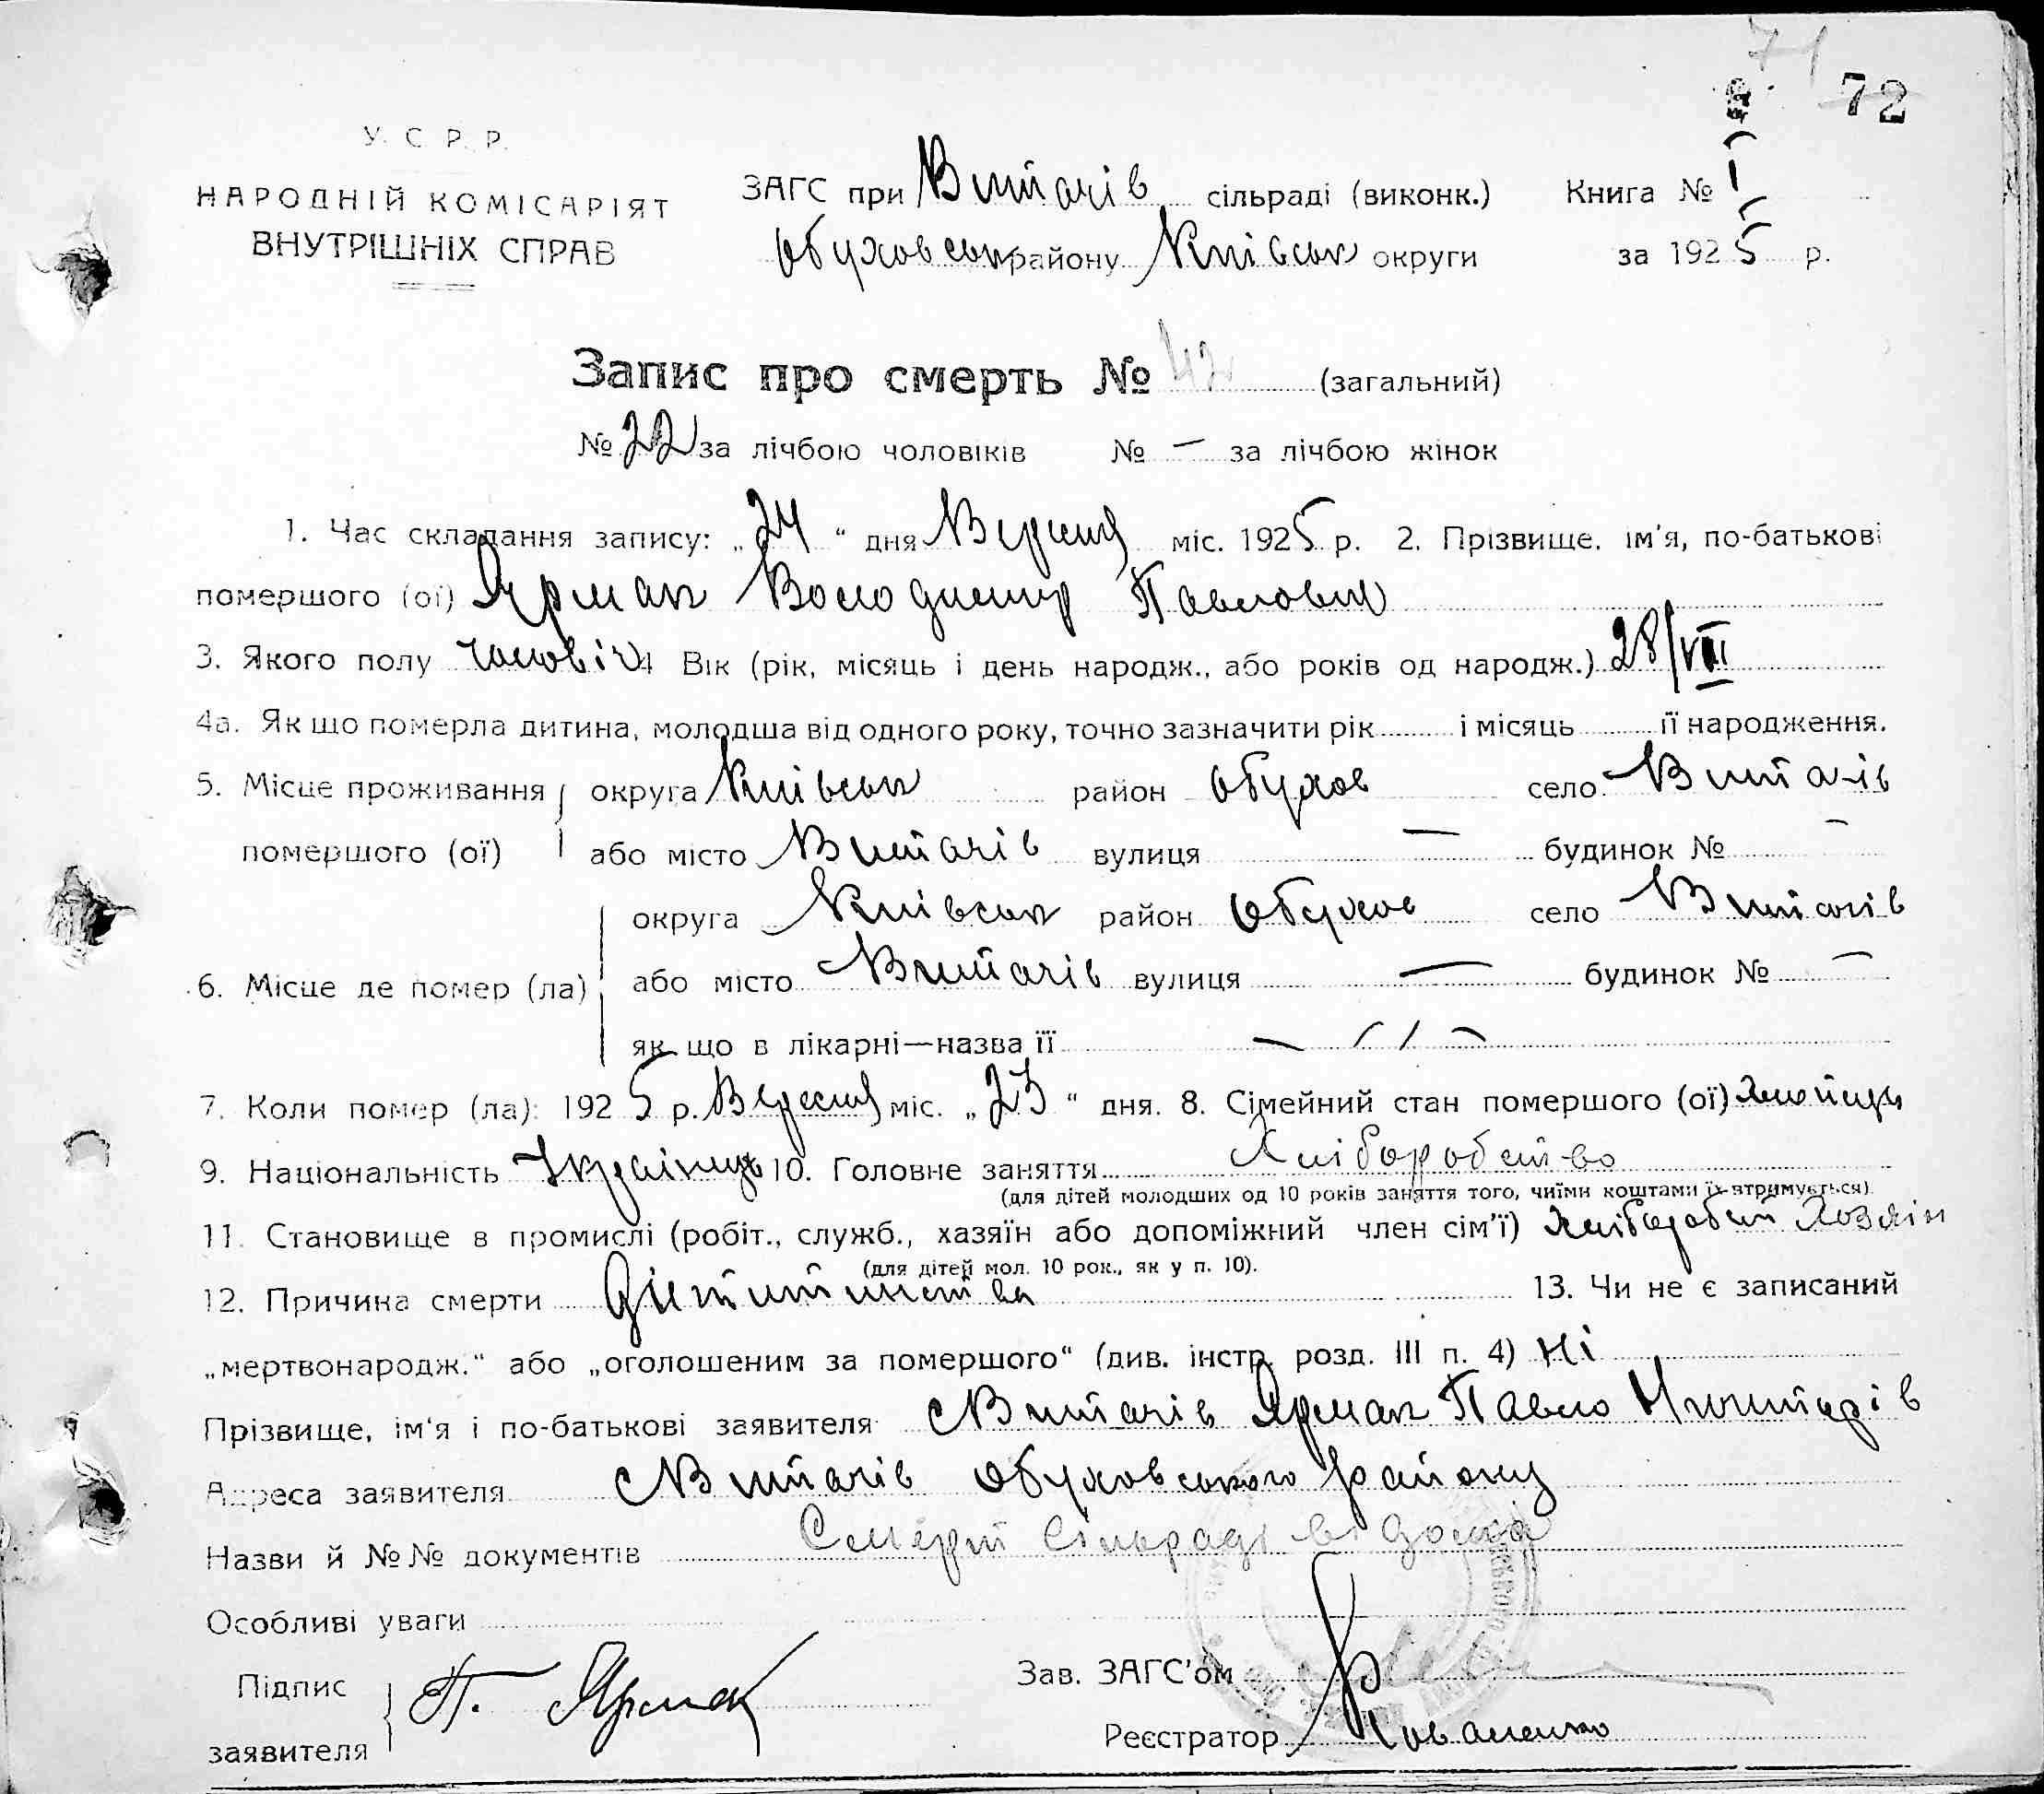 71
72
У. С. Р. Р.
НАРОДНІЙ КОМІСАРІЯТ
ВНУТРІШНІХ СПРАВ
ЗАГС при Витачів сільраді (виконк.)
Обуховськ району Київськ округи
Книга № 1
за 1925 р.
Запис про смерть № 42 (загальний)
№ 22 за лічбою чоловіків № — за лічбою жінок
1. Час складання запису: „24“ дня Вересня міс. 1925 р. 2. Прізвище, ім'я, по-батькові
помершого (ої) Ярмак Володимир Павлович
3. Якого полу чоловіч 4 Вік (рік, місяць і день народж., або років од народж.) 28/VIII
4а. Як що померла дитина, молодша від одного року, точно зазначити рік і місяць її народження.
5. Місце проживання округа Київськ район Обухов село Витачів
помершого (ої) або місто Витачів вулиця — будинок № —
округа Київськ район Обухов село Витачів
6. Місце де помер (ла) або місто Витачів вулиця — будинок № —
як що в лікарні—назва її —//—
7. Коли помер (ла): 1925 р. Вересня міс. „23“ дня. 8. Сімейний стан помершого (ої)
9. Національність Українець 10. Головне заняття Хліборобство
(для дітей молодших од 10 років заняття того, чиїми коштами їх втримується)
11. Становище в промислі (робіт., служб., хазяїн або допоміжний член сім'ї) Хлібороб Хозяін
(для дітей мол. 10 рок., як у п. 10).
12. Причина смерти 13. Чи не є записаний
„мертвонародж.“ або „оголошеним за помершого“ (див. інстр. розд. III п. 4) Ні
Прізвище, ім'я і по-батькові заявителя Витачів Ярмак Павло
Адреса заявителя Витачів Обуховського району
Назви й №№ документів Смерт Сільраді
Особливі уваги
Підпис
заявителя П. Ярмак
Зав. ЗАГС'ом
Реєстратор Коваленко